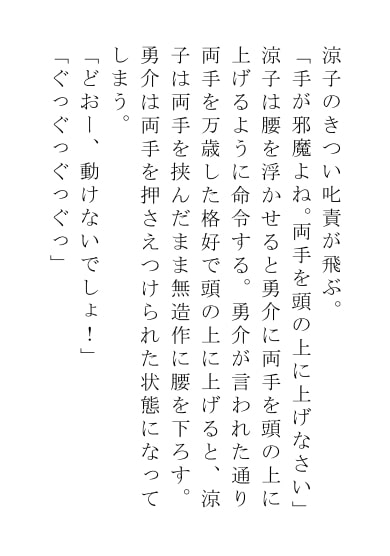 涼子のきつい叱責が飛ぶ。
「手が邪魔よね。両手を頭の上に上げなさい」
涼子は腰を浮かせると勇介に両手を頭の上に
上げるように命令する。勇介が言われた通り
両手を万歳した格好で頭の上に上げると、涼
子は両手を挟んだまま無造作に腰を下ろす。
勇介は両手を押さえつけられた状態になって
しまう。
「どおー、動けないでしょ！」
「ぐっぐっぐっぐっ」